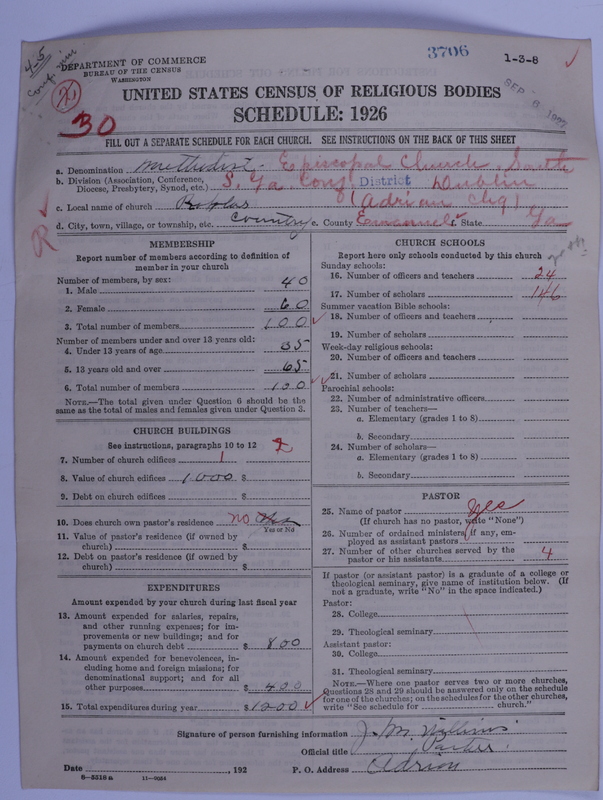 3706
1-3-8
4-5
DEPARTMENT OF COMMERCE
BUREAU OF THE CENSUS
WASHINGTON
UNITED STATES CENSUS OF RELIGIOUS BODIES
30
SCHEDULE: 1926
FILL OUT A SEPARATE SCHEDULE FOR EACH CHURCH. SEE INSTRUCTIONS ON THE BACK OF THIS SHEET
a. Denomination Methodist - Episcopal Church, South
b. Division (Association, Conference, Diocese, Presbytery, Synod, etc.) S. Ga. Conf. District Dublin
c. Local name of church (Adrian chg)
d. City, town, village, or township, etc. Country e. County Emanuel f. State Ga
MEMBERSHIP
Report number of members according to definition of
member in your church
Number of members, by sex:
1. Male 40
2. Female 60
3. Total number of members 100
Number of members under and over 13 years old:
4. Under 13 years of age 35
5. 13 years old and over 65
6. Total number of members 100
NOTE.—The total given under Question 6 should be the
same as the total of males and females given under Question 3.
CHURCH BUILDINGS
See instructions, paragraphs 10 to 12 2
7. Number of church edifices 1
8. Value of church edifices 1000 $
9. Debt on church edifices $
10. Does church own pastor's residence no
Yes or No
11. Value of pastor's residence (if owned by
church) $
12. Debt on pastor's residence (if owned by
church) $
EXPENDITURES
Amount expended by your church during last fiscal year
13. Amount expended for salaries, repairs,
and other running expenses; for im-
provements or new buildings; and for
payments on church debt $ 800
14. Amount expended for benevolences, in-
cluding home and foreign missions; for
denominational support; and for all
other purposes $ 400
15. Total expenditures during year $ 1200
CHURCH SCHOOLS
Report here only schools conducted by this church
Sunday schools:
16. Number of officers and teachers 24
17. Number of scholars 146
Summer vacation Bible schools:
18. Number of officers and teachers
19. Number of scholars
Week-day religious schools:
20. Number of officers and teachers
21. Number of scholars
Parochial schools:
22. Number of administrative officers
23. Number of teachers—
a. Elementary (grades 1 to 8)
b. Secondary
24. Number of scholars—
a. Elementary (grades 1 to 8)
b. Secondary
PASTOR
25. Name of pastor Yes
(If church has no pastor, write "None")
26. Number of ordained ministers, if any, em-
ployed as assistant pastors
27. Number of other churches served by the
pastor or his assistants 4
If pastor (or assistant pastor) is a graduate of a college or
theological seminary, give name of institution below. (If
not a graduate, write "No" in the space indicated.)
Pastor:
28. College
29. Theological seminary
Assistant pastor:
30. College
31. Theological seminary
NOTE.—Where one pastor serves two or more churches,
Questions 28 and 29 should be answered only on the schedule
for one of the churches; on the schedules for the other churches,
write "See schedule for church."
Signature of person furnishing information J. M. Williams
Official title Pastor
Date , 192 P. O. Address Adrian
8—5518a 11—9034